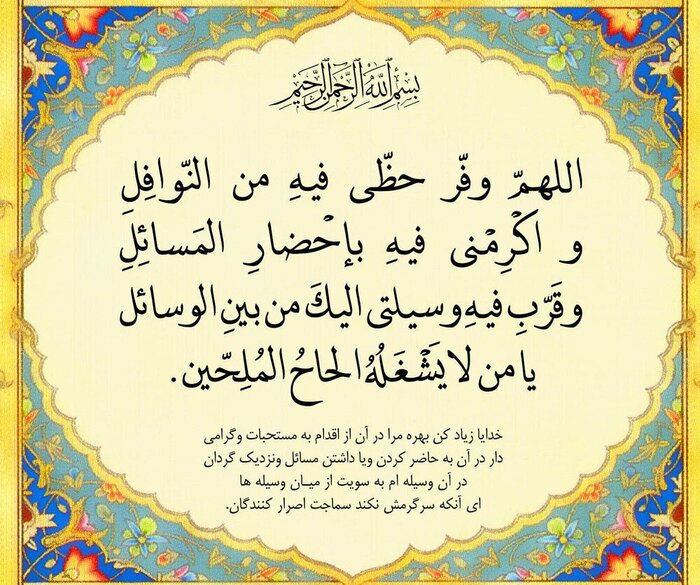 بِسْمِ اللَّهِ الرَّحْمٰنِ الرَّحِيْمِ
اللهمّ وفّر حظّی فیهِ من النّوافِلِ
و اکْرِمْنی فیهِ بإحْضارِ المَسائِلِ
و قَرّبِ فیهِ وسیلتی الیكَ من بینِ الوسائل
یا من لا یَشْغَلُهُ الحاحُ المُلِحّین.
خدایا زیاد کن بهره مرا در آن از اقدام به مستحبات وگرامی
دار در آن به حاضر کردن ویا داشتن مسائل ونزدیک گردان
در آن وسیله ام به سویت از میـان وسیله ها
ای آنکه سرگرمش نکند سماجت اصرار کنندگان.